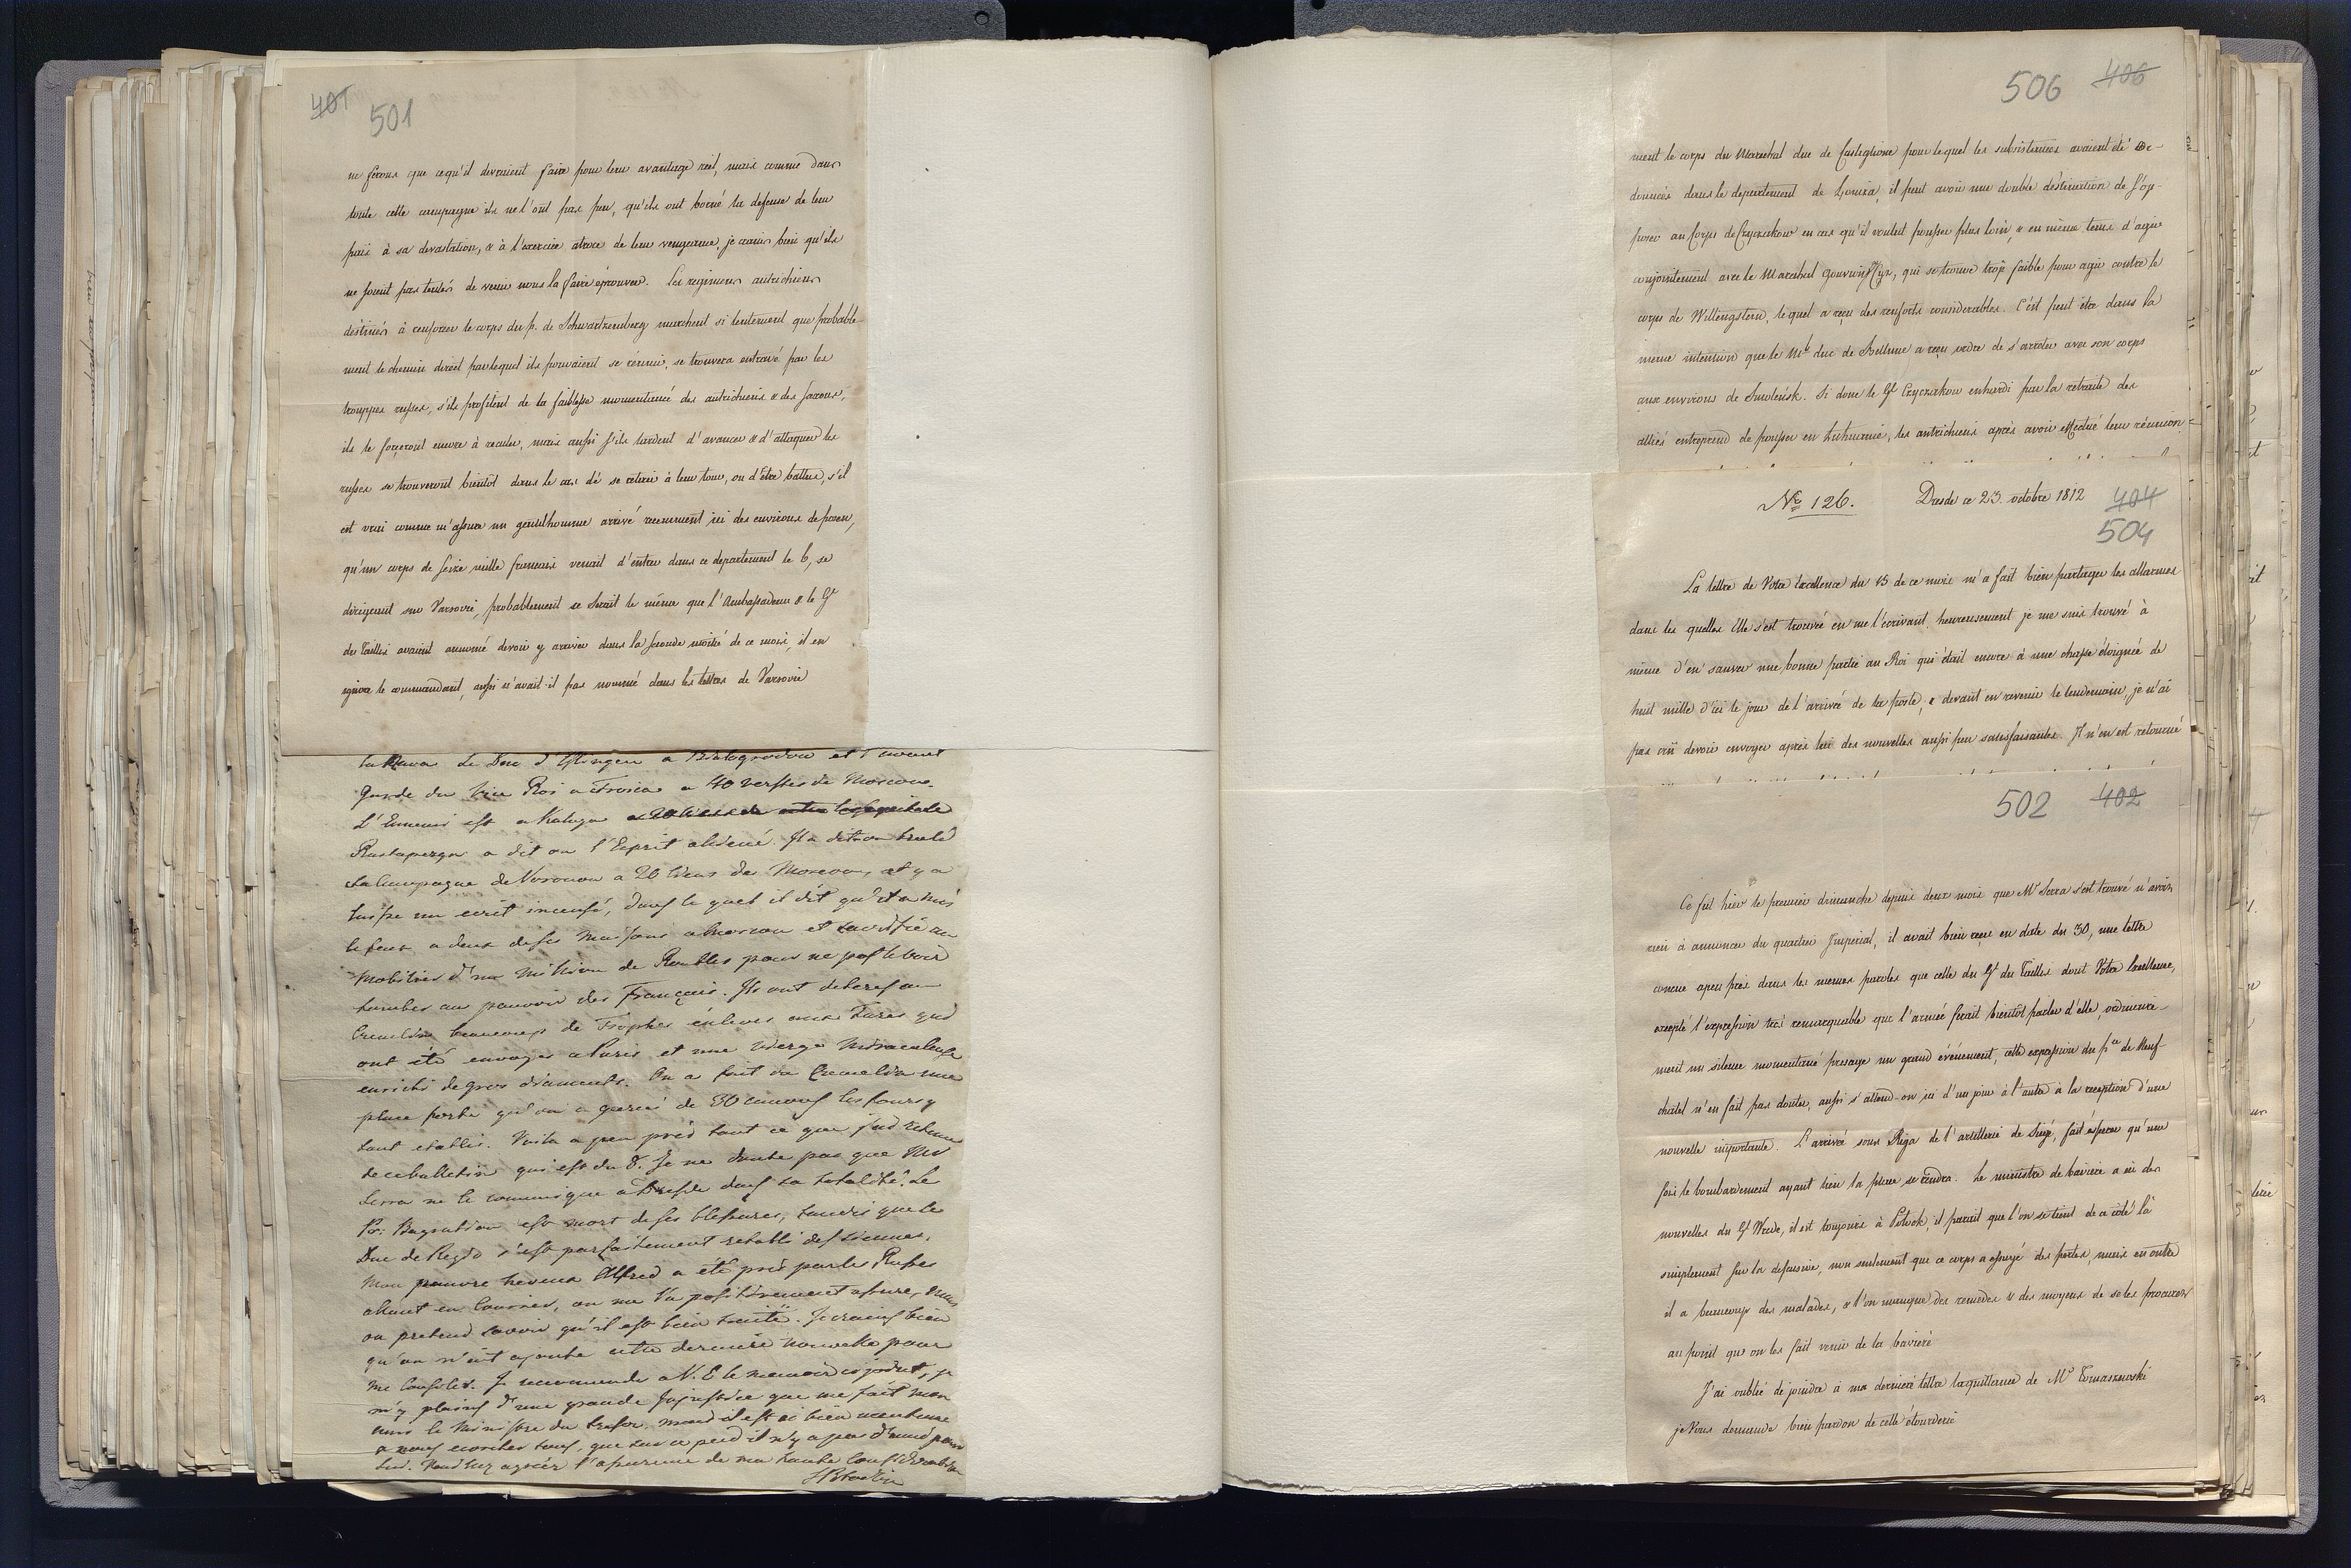 401 501
ne ferons que ce qu'il devraient faire pour leur avantage réel, mais comme dans
toute cette campagne ils ne l'ont pas fait, qu'ils ont borné la defense de leur
païs à sa devastation, & à l'exercice atroce de leur vengeance, je crains bien qu'ils
ne soient pas tentés de venir nous la faire éprouver. Les regimens autrichiens
destinés à renforcer le corps du p. de Schwartzenberg marchent si lentement que probable-
ment le chemin direct par lequel ils pouvaient se réunir, se trouvera entravé par les
trouppes russes, s'ils profitent de la faiblesse momentanée des autrichiens & des saxons,
ils le forçeront encore à reculer, mais aussi s'ils tardent d'avancer & d'attaquer les
russes se trouveront bientôt dans le cas de se retirer à leur tour, ou d'être battus, s'il
est vrai comme m'assure un gentilhomme arrivé recemment ici des environs de posen,
qu'un corps de seize mille francais venait d'entrer dans ce departement le 6, se
dirigeant sur Varsovie, probablement ce serait le même que l'Ambassadeur & le Gl
du Taillis avaient annoncé devoir y arriver dans la seconde moitié de ce mois, il en
ignore le commandant, aussi n'avait-il pas nommé dans les lettres de Varsovie
le Duc d'Elkingen a Bielogrodow et l'avant
Garde du Vice Roi a Troica a 40 verstes de Moscou.
L'Ennemi est a Kaluga
Rastapezyn a dit on l'Esprit aliené. Il a dit on brulé
sa Campagne de Voronow a 20 lieus de Moscou, et y a
laisse un ecrit incensé, dans le quel il dit qu'il a mis
le feux a deux de ses Maisons a Moscou et sacrifié un
Mobilier d'un million de Roubles pour ne pas le voir
tomber au pouvoir des Français. Ils ont
Cremlin beaucoup de Trophes enleves aux Turcs qui
ont été envoyes a Paris et une Vierge Miraculeuse
enrichi de gros diamants. On a fait du Cremelin une
place forte qu'on a garni de 30 canons les fours y
sont etablis. Voila a peu près tout ce que j'ai retenu
de ce bulletin qui est du 8. Je ne doute pas que Mr
Serra ne le comunique a Dresde dans sa totalité. Le
Pr: Bagration est mort de ses blessures, tandis que le
Duc de Regio s'est parfaitement retabli des siennes.
Mon pauvre neveux Alfred a été pris par les Russes
allant en Courrier, on me l'a positivement assure, mais
on pretend savoir qu'il est bien traité. Je crains bien
qu'on n'ait ajouté cette derniere nouvelle pour
me consoler. Je recommende a V. E le memoire ci joint, je
m'y plains d'une grande Injustice que me fait mon
ami le Ministre du tresor, mais il est si bien
a nous ecorcher tous, que sur ce pied il n'y a pas d'ami pour
lui. Veuillez agréer l'assurence de ma haute consideration
506 406
ment le corps du Marechal duc de Castiglione pour lequel les subsistences avaient été de-
mandées dans le departement de Lomza, il peut avoir une double destination de s'op-
poser au Corps de Czyczakow en cas qu'il voulut pousser plus loin, & en même tems d'agir
conjointement avec le Marechal Gouvion St Cyr, qui se trouve trop faible pour agir contre le
corps de Wittengstern, lequel a reçu des renforts considerables. C'est peut être dans la
même intention que le Ml duc de Bellune a reçu ordre de s'arrêter avec son corps
aux environs de Smolensk. Si donc le Gl Czyczakow enhardi par la retraite des
alliés entreprend de pousser en Lithuanie, les autrichiens après avoir effectué leur réunion
No 126. Dresde ce 23. octobre 1812 404
504
La lettre de Votre Excellence du 15 de ce mois m'a fait bien partager les allarmes
dans les quelles Elle s'est trouvée en me l'écrivant, heureusement je me suis trouvé à
même d'en sauver une bonne partie au Roi qui était encore à une chasse éloignée de
huit mille d'ici le jour de l'arrivée de la poste, & devant en revenir le lendemain, je n'ai
pas crû devoir envoyer après lui des nouvelles aussi peu satisfaisantes. Il n'en est retourné
502 402
Ce fut hier le premier dimanche depuis deux mois que Mr Serra s'est trouvé n'avoir
rien à annoncer du quartier Imperial, il avait bien reçu en date du 30, une lettre
concue apeu près dans les memes paroles que celle du Gl du Taillis dont Votre Excellence,
excepté l'expression très remarquable que l'armée ferait bientôt parler d'elle, ordinaire-
ment un silence momentané presage un grand événement, cette expression du pce de Neuf-
chatel n'en fait pas douter, aussi s'attend-on ici d'un jour à l'autre à la reception d'une
nouvelle importante. L'arrivée sous Riga de l'artillerie de siege, fait esperer qu'une
fois le bombardement ayant lieu la place se rendra. Le ministre de baviere a eu des
nouvelles du Gl Wrede, il est toujours à Polock, il parait que l'on se tient de ce côté là
simplement sur la defensive, non seulement que ce corps a essuyé des pertes, mais en outre
il a beaucoup des malades, & l'on manque des remedes & des moyens de se les procurer
au point qu'on les fait venir de la baviere
J'ai oublié de joindre à ma derniere lettre la quittance de Mr Tomaszewski
je Vous demande bien pardon de cette étourderie